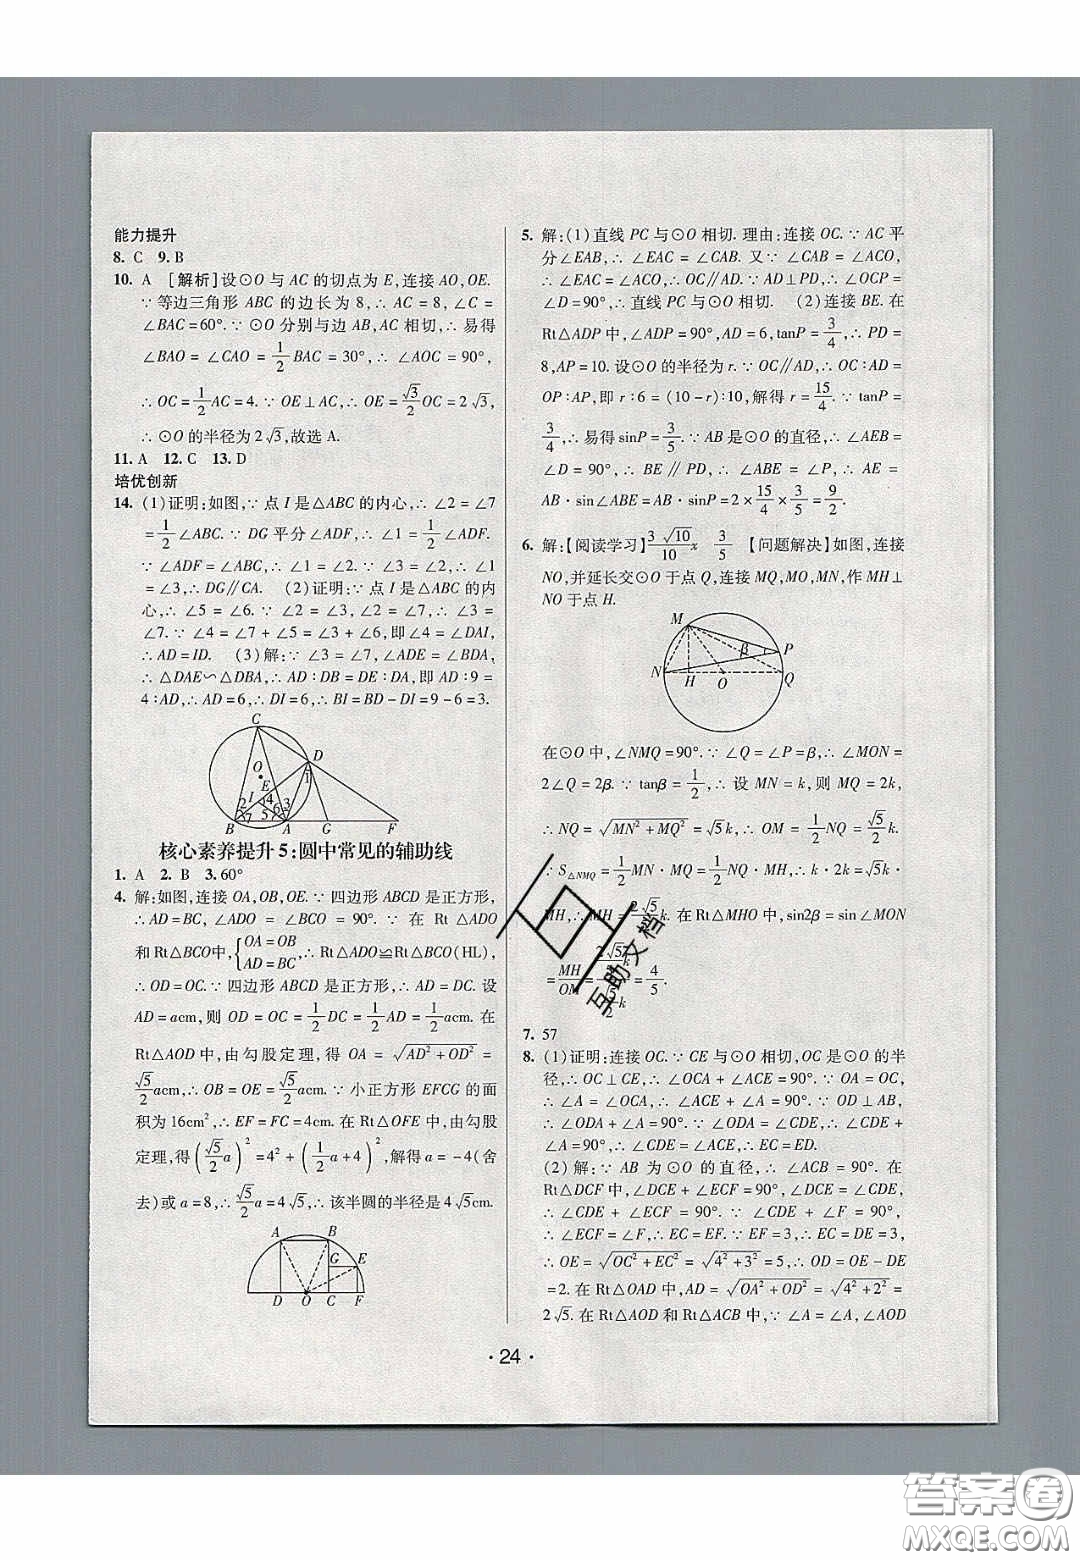 能力提升
8. C  9. B
10. A  [解析]设⊙O 与 AC 的切点为 E,连接 AO,OE.
∵ 等边三角形 ABC 的边长为 8,∴ AC = 8,∠C =
∠BAC = 60°.∵ ⊙O 分别与边 AB,AC 相切,∴ 易得
∠BAO = ∠CAO = 1/2 BAC = 30°,∴ ∠AOC = 90°,
∴ OC = 1/2 AC = 4.∵ OE ⊥ AC,∴ OE = √3/2 OC = 2√3,
∴ ⊙O 的半径为 2√3,故选 A.
11. A  12. C  13. D
培优创新
14. (1)证明:如图,∵ 点 I 是△ABC 的内心,∴ ∠2 = ∠7
= 1/2 ∠ABC.∵ DG 平分∠ADF,∴ ∠1 = 1/2 ∠ADF.
∵ ∠ADF = ∠ABC,∴ ∠1 = ∠2.∵ ∠3 = ∠2,∴ ∠1 =
∠3,∴ DG∥CA. (2)证明:∵ 点 I 是△ABC 的内
心,∴ ∠5 = ∠6.∵ ∠4 = ∠7 + ∠5 = ∠3 + ∠6,即∠4 = ∠DAI,
∴ AD = ID. (3)解:∵ ∠3 = ∠7,∠ADE = ∠BDA,
∴ △DAE∽△DBA,∴ AD∶DB = DE∶DA,即 AD∶9 =
4∶AD,∴ AD = 6,∴ DI = 6,∴ BI = BD − DI = 9 − 6 = 3.
C
O
D
E
1
I
4
2
3
7
5
6
B
A
G
F
核心素养提升 5:圆中常见的辅助线
1. A  2. B  3. 60°
4. 解:如图,连接 OA,OB,OE.∵ 四边形 ABCD 是正方形,
∴ AD = BC,∠ADO = ∠BCO = 90°.∵ 在 Rt△ADO
和 Rt△BCO中,{OA = OB, AD = BC,∴ Rt△ADO≌Rt△BCO(HL),
∴ OD = OC.∵ 四边形 ABCD 是正方形,∴ AD = DC. 设
AD = acm,则 OD = OC = 1/2 DC = 1/2 AD = 1/2 acm. 在
Rt△AOD 中,由勾股定理,得 OA = √(AD² + OD²) =
√5/2 acm,∴ OB = OE = √5/2 acm.∵ 小正方形 EFCG 的面
积为 16cm²,∴ EF = FC = 4cm. 在 Rt△OFE 中,由勾股
定理,得(√5/2 a)² = 4² + (1/2 a + 4)²,解得 a = −4(舍
去)或 a = 8,∴ √5/2 a = 4√5,∴ 该半圆的半径是 4√5cm.
A
B
G
E
D
O
C
F
5. 解:(1)直线 PC 与⊙O 相切. 理由:连接 OC.∵ AC 平
分∠EAB,∴ ∠EAC = ∠CAB. 又∵ ∠CAB = ∠ACO,
∴ ∠EAC = ∠ACO,∴ OC∥AD.∵ AD⊥PD,∴ ∠OCP
= ∠D = 90°,∴ 直线 PC 与⊙O 相切. (2)连接 BE. 在
Rt△ADP 中,∠ADP = 90°,AD = 6,tanP = 3/4,∴ PD =
8,AP = 10. 设⊙O 的半径为 r.∵ OC∥AD,∴ OC∶AD =
OP∶AP,即 r∶6 = (10 − r)∶10,解得 r = 15/4.∵ tanP =
3/4,∴ 易得 sinP = 3/5.∵ AB 是⊙O 的直径,∴ ∠AEB =
∠D = 90°,∴ BE∥PD,∴ ∠ABE = ∠P,∴ AE =
AB·sin∠ABE = AB·sinP = 2 × 15/4 × 3/5 = 9/2.
6. 解:【阅读学习】3√10/10 x  3/5  【问题解决】如图,连接
NO,并延长交⊙O 于点 Q,连接 MQ,MO,MN,作 MH⊥
NO 于点 H.
M
β
P
N
H
O
Q
在⊙O 中,∠NMQ = 90°.∵ ∠Q = ∠P = β,∴ ∠MON =
2∠Q = 2β.∵ tanβ = 1/2,∴ 设 MN = k,则 MQ = 2k,
∴ NQ = √(MN² + MQ²) = √5k,∴ OM = 1/2 NQ = √5/2 k.
∵ S△NMQ = 1/2 MN·MQ = 1/2 NQ·MH,∴ k·2k = √5k·
MH,∴ MH = 2√5/5 k. 在 Rt△MHO 中,sin2β = sin∠MON
= MH/OM = (2√5/5 k)/(√5/2 k) = 4/5.
7. 57
8. (1)证明:连接 OC.∵ CE 与⊙O 相切,OC 是⊙O 的半
径,∴ OC⊥CE,∴ ∠OCA + ∠ACE = 90°.∵ OA = OC,
∴ ∠A = ∠OCA,∴ ∠ACE + ∠A = 90°.∵ OD⊥AB,
∴ ∠ODA + ∠A = 90°.∵ ∠ODA = ∠CDE,∴ ∠CDE +
∠A = 90°,∴ ∠CDE = ∠ACE,∴ EC = ED.
(2)解:∵ AB 为⊙O 的直径,∴ ∠ACB = 90°. 在
Rt△DCF 中,∠DCE + ∠ECF = 90°,∠DCE = ∠CDE,
∴ ∠CDE + ∠ECF = 90°.∵ ∠CDE + ∠F = 90°,
∴ ∠ECF = ∠F,∴ EC = EF.∵ EF = 3,∴ EC = DE = 3,
∴ OE = √(OC² + EC²) = √(4² + 3²) = 5,∴ OD = OE − DE
= 2. 在 Rt△OAD 中,AD = √(OA² + OD²) = √(4² + 2²) =
2√5. 在 Rt△AOD 和 Rt△ACB 中,∵ ∠A = ∠A,∠AOD
互助文档
· 24 ·
答案卷
MXQE.COM